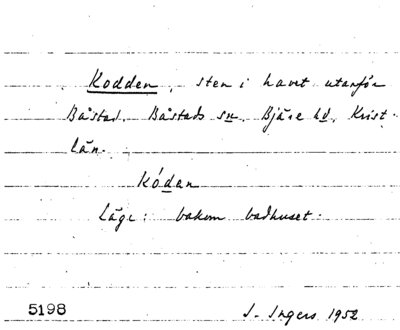 Kodden, sten i havet utanför
Båstad. Båstads sn. Bjäre hd. Krist.
län.
kódan
Läge: bakom badhuset.
5198 I. Ingers 1952